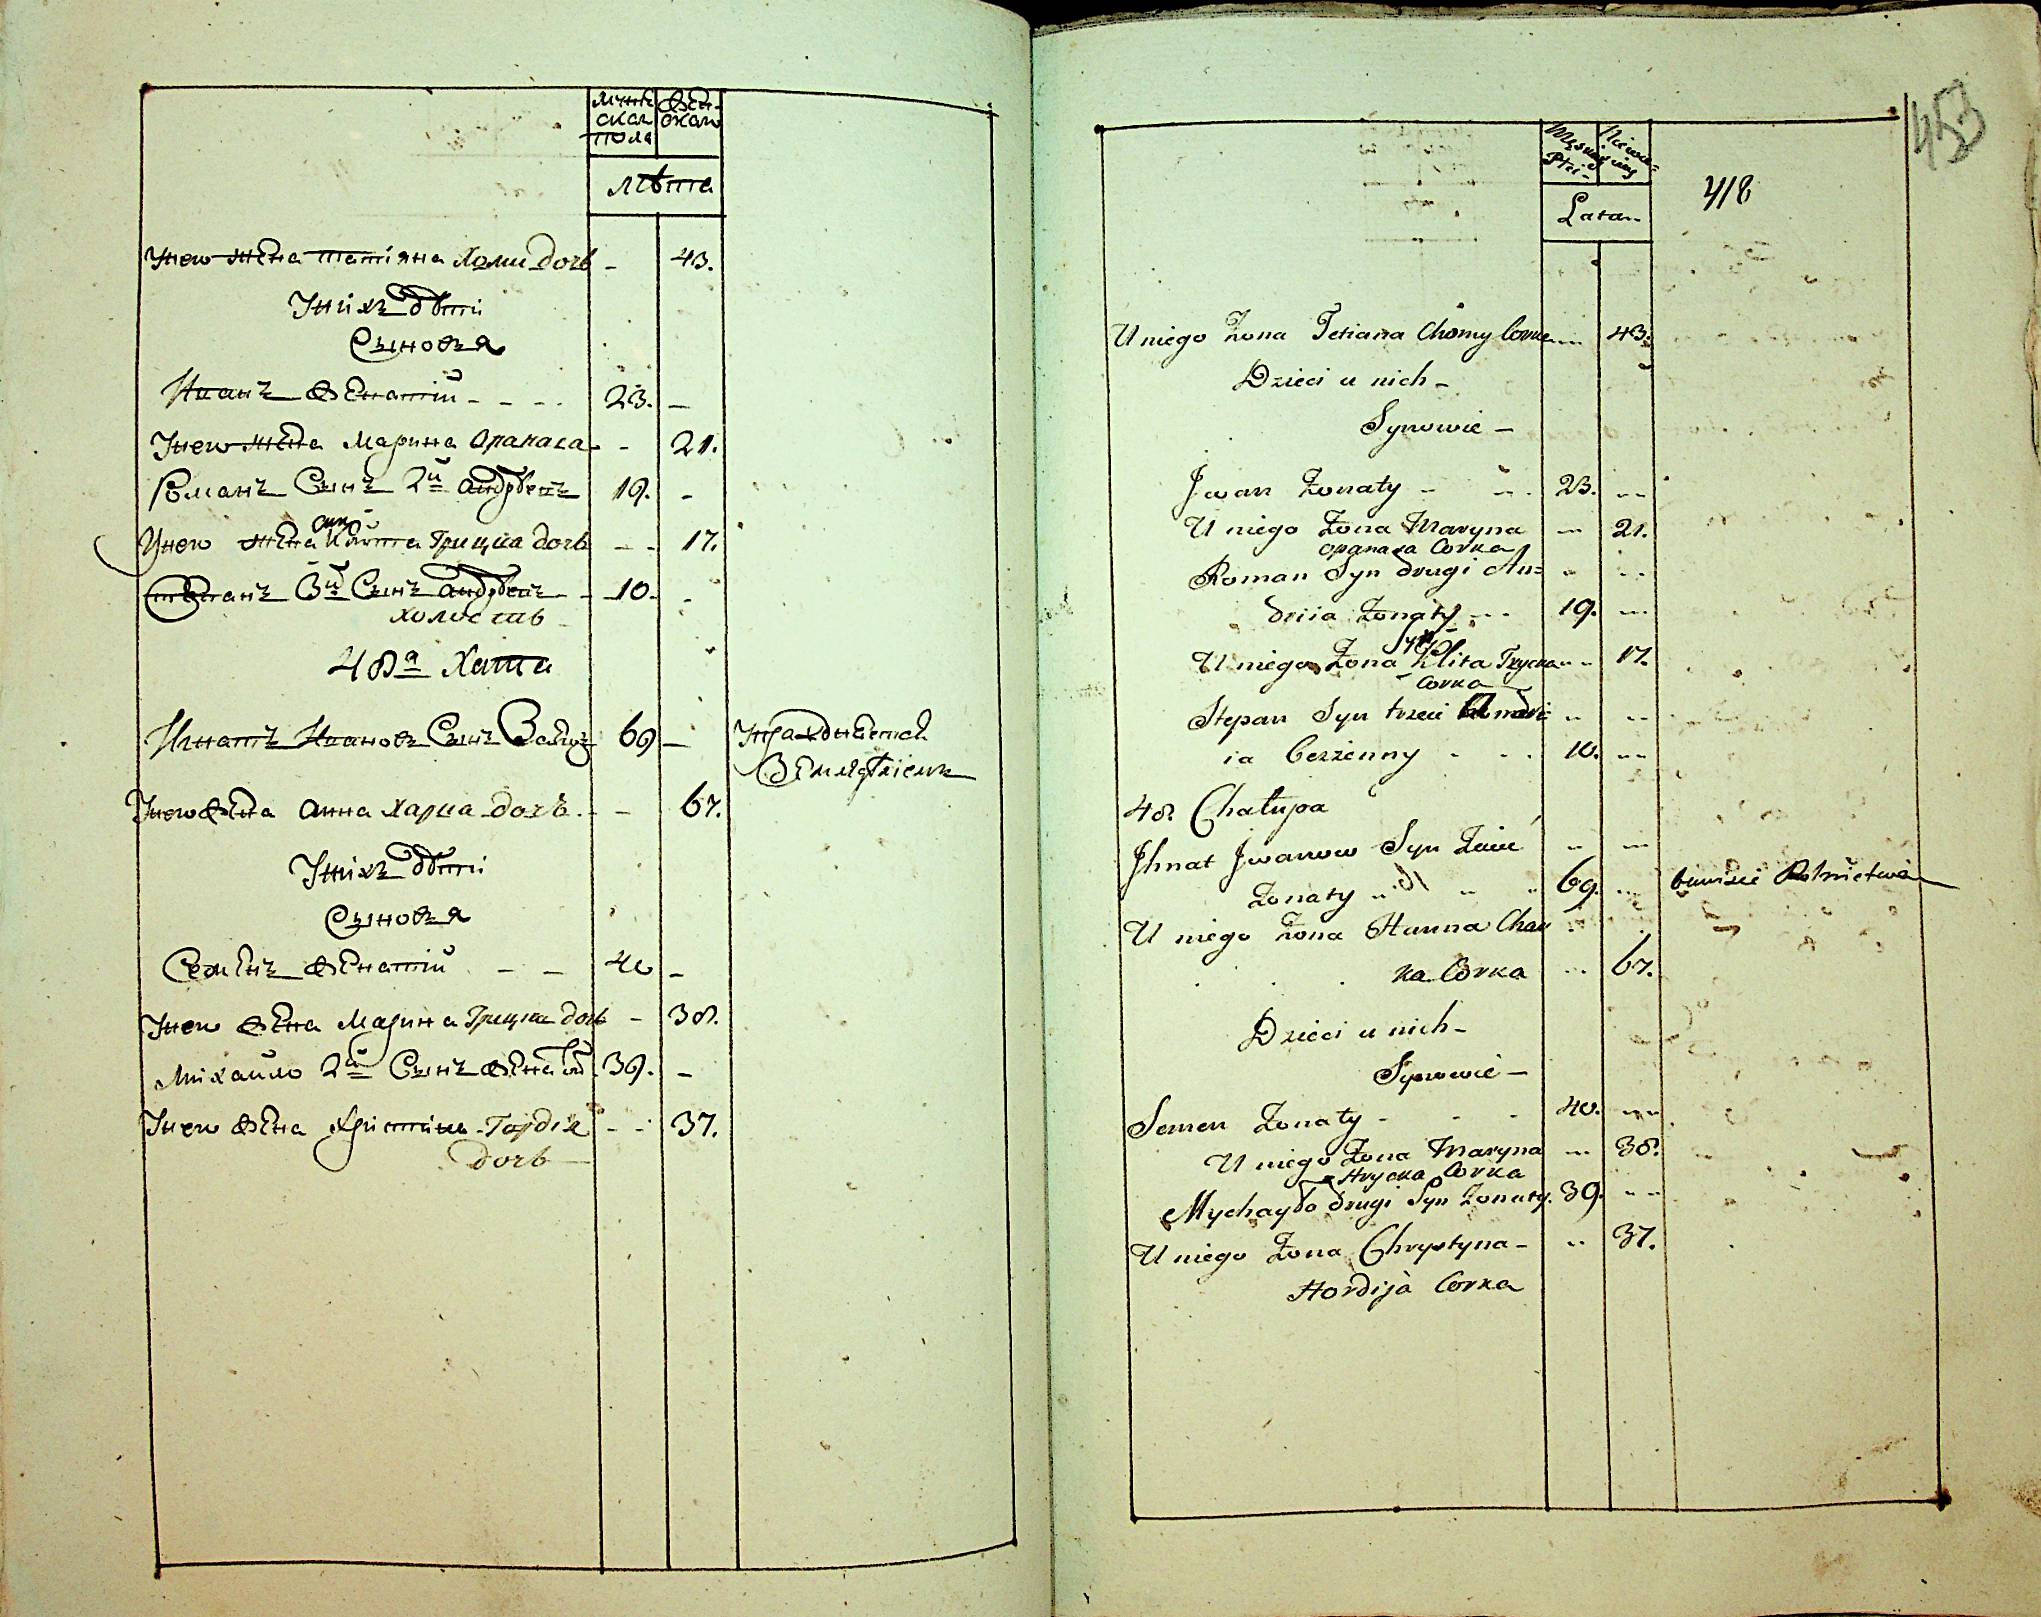 мужеска пола
женска
лѣта
Унего жена татіяна Хоми дочь - 43.
Унихъ дѣти
Сыновья
Иванъ женатій - - - - 23. -
Унего жена Марина Опанаса - 21.
Романъ Сынъ 2й андрѣевъ 19. -
Унего жена Грицка дочь - - 17.
Степанъ 3й Сынъ андрѣевъ - 10. -
холостъ
48а Хата
Игнатъ Ивановъ Сынъ 69 -
Унего жена анна Харка дочь. - 67.
Унихъ дѣти
Сыновья
Семенъ женатій - - 40 -
Унего жена Марина Грицка дочь - 38.
Михайло 2й Сынъ женатій 39. -
Унего жена Христина Гордія - - 37.
дочь
453
418
Męskiey Płci
Niewieściey
Lata
U niego Żona Tetiana Chomy Corka 43.
Dzieci u nich -
Synowie -
Jwan Żonaty - 23.
U niego Żona Maryna 21.
Opanasa Corka
Roman Syn drugi An=
driia Żonaty - - 19.
U niego Żona Hrycka 17.
Corka
Stepan Syn trzeci Andri
ia bezżenny - - - 10.
48. Chałupa
Jhnat Jwanow Syn
Żonaty 69.
U niego Żona Hanna Char
ka Corka 67.
Dzieci u nich -
Synowie -
Semen Żonaty - - - 40.
U niego Żona Maryna 38.
Hrycka Corka
Mychayło drugi Syn Żonaty. 39.
U niego Żona Chrystyna - 37.
Hordija Corka